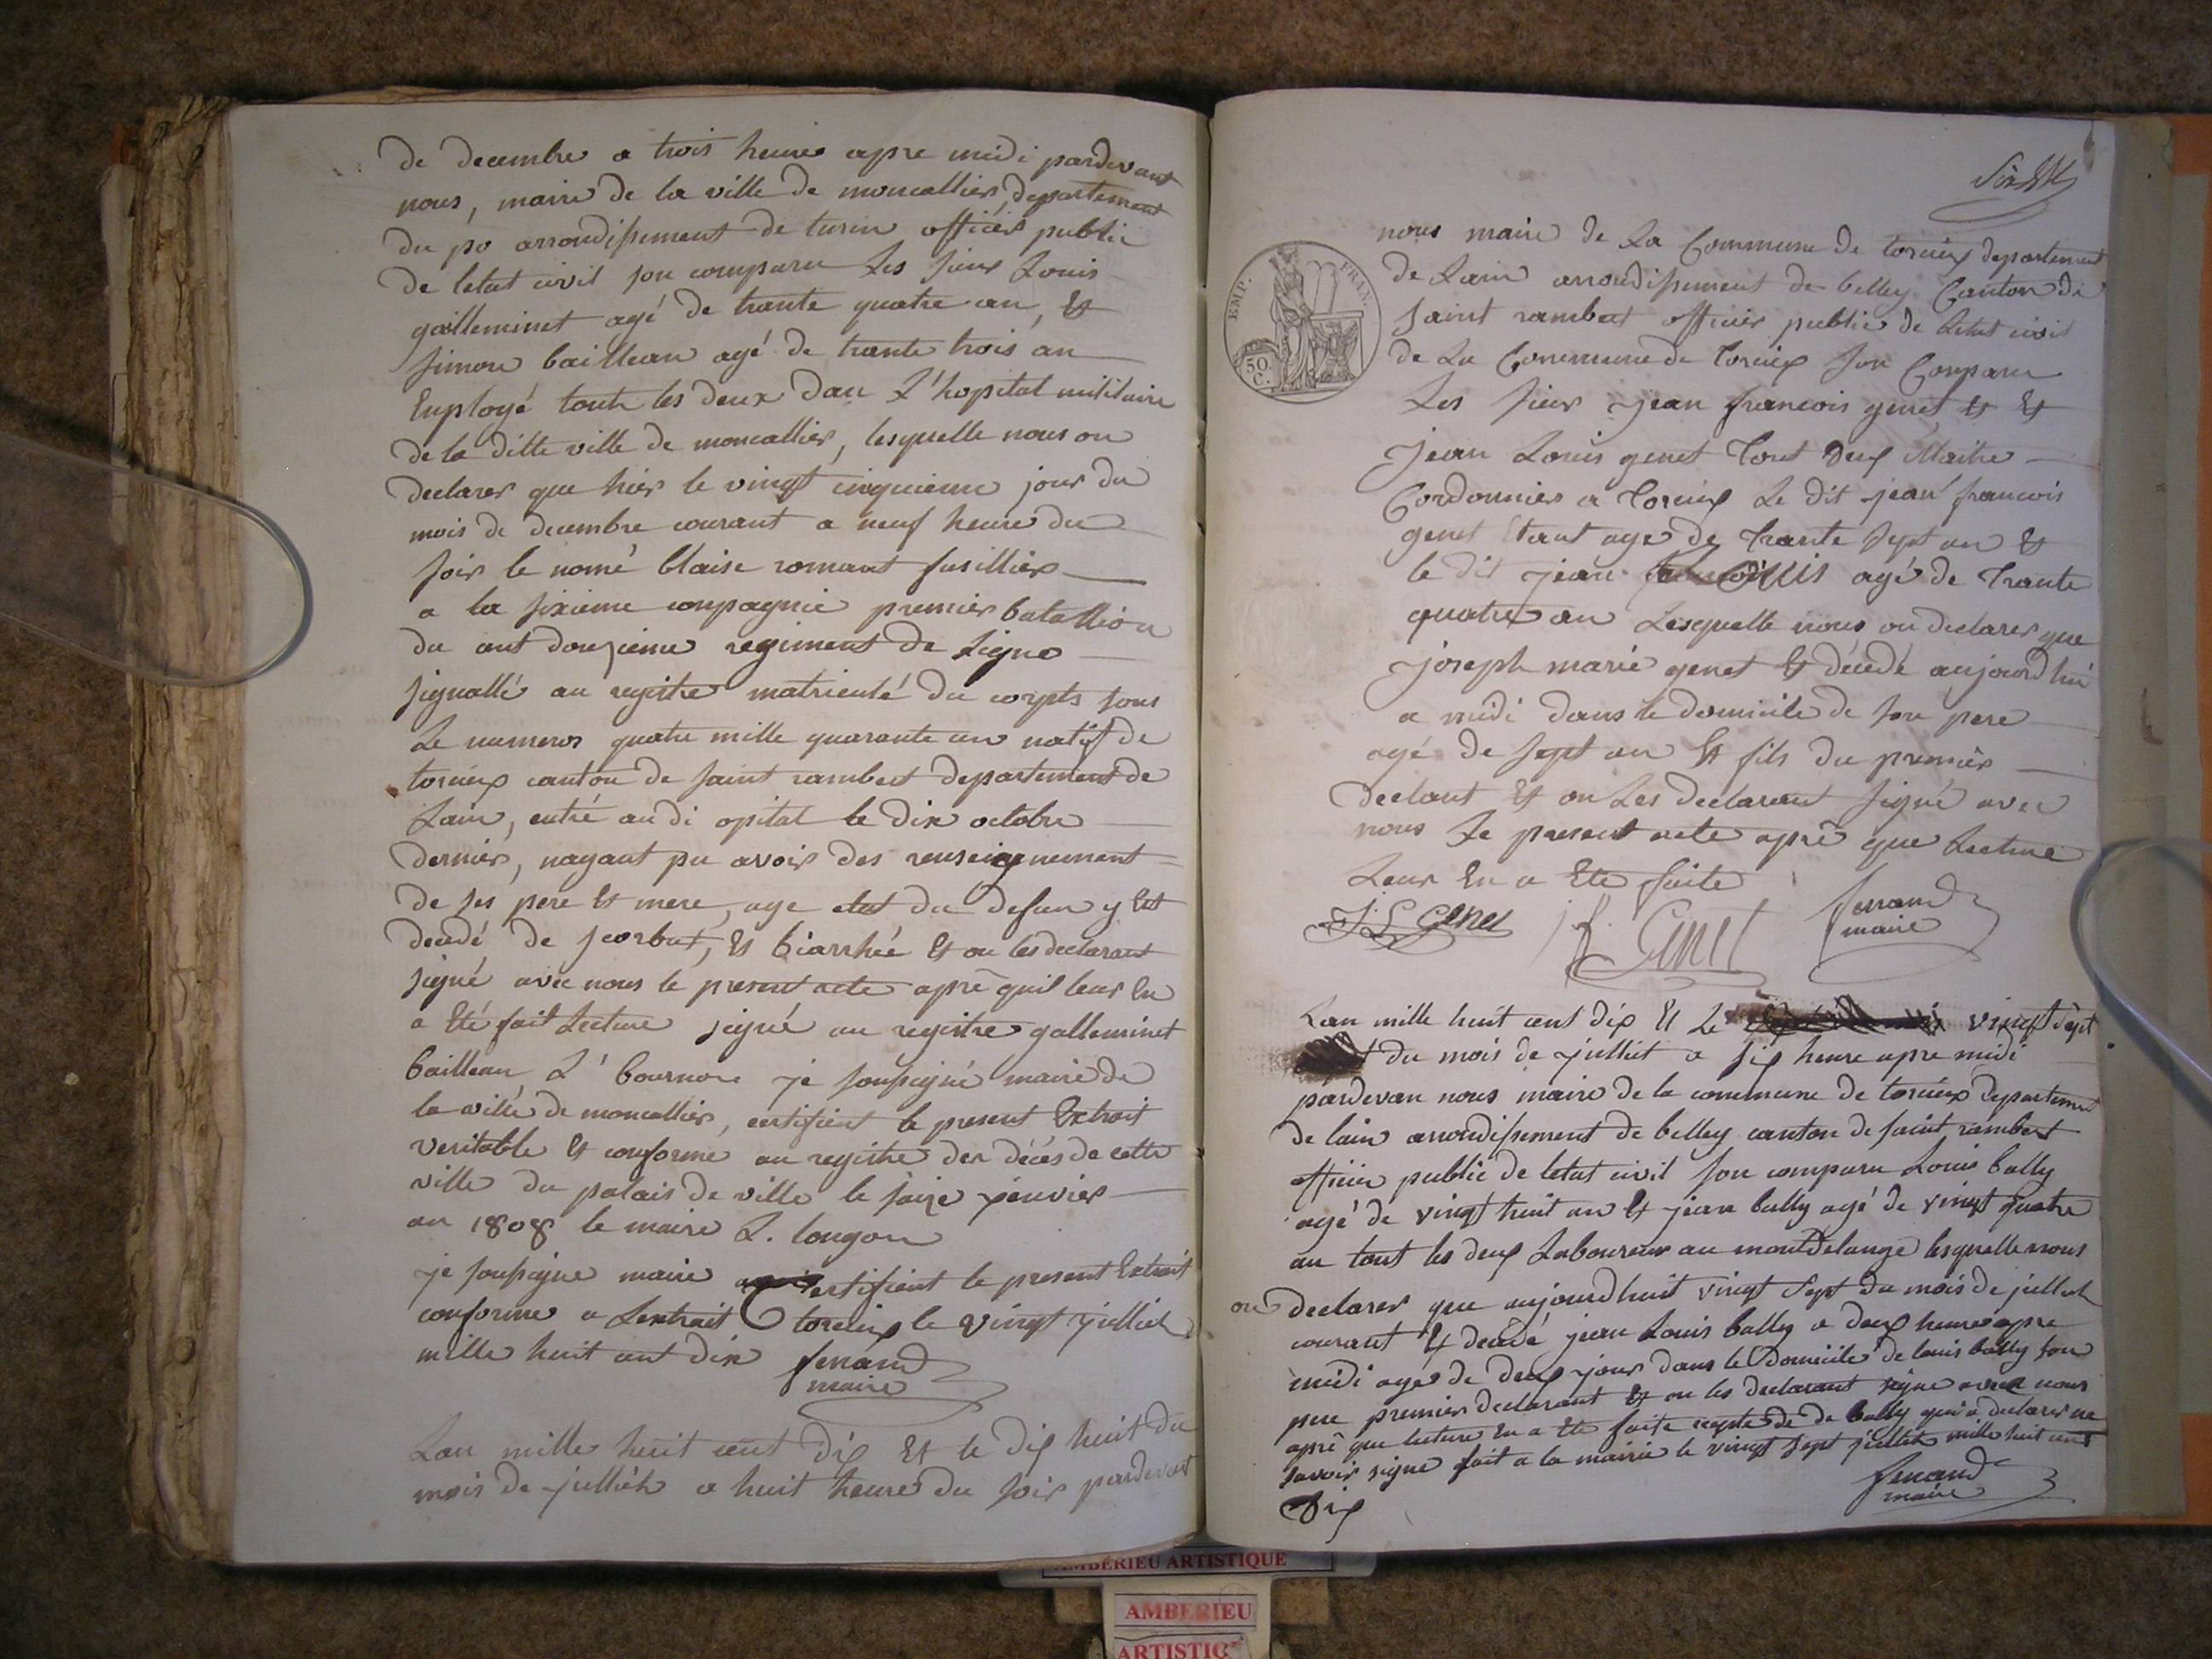 de decembre a trois heure apre midi pardevant
nous, maire de la ville de moncallier, departement
du po arrondissement de turin officier public
de letat civil son comparu les sieur Louis
gailleminet agé de trante quatre an, et
simon bailleau agé de trante trois an
Employé tout les deux dan L'hopital militaire
de la ditte ville de moncallier, lesquelle nous on
declarer que hier le vingt cinquieme jour du
mois de decembre courant a neuf heure du
soir le nomé blaise romant fusillier
a la sixieme compagnie premier batallion
du cent douzieme regiment de Ligne
signallé au registre matrieulé du corpts sous
Le numeros quatre mille quarante un natif de
torcieux canton de saint rambert departement de
Lain, entré au di opital le dix octobre
dernier, nayant pu avoir des renseignement
de ses pere et mere, age etat du defun y est
decedé de scorbut, et diarrhée et on les declarant
signé avec nous le present acte aprê quil leur en
a eté fait Lecture signé au registre galleminet
bailleau, L' bournon je soussigné maire de
la ville de moncallier, certifient le present Extrait
veritable et conforme au registre der décés de cette
ville du palais de ville le saize jeuvier
an 1808 le maire L. longon
je soussigne maire certifient le present Extrait
conforme a Lextrait torcieux le vingt juilliet
mille huit cent dix ferrand
maire
Lan mille huit cent dix Et le dix huit du
mois de julliet a huit heure du soir pardevant
nous maire de La Commune de torcieux departement
de Lain arrondissement de belley Canton de
saint rambert officier public de Letat civil
de La Commune de torcieux son Comparu
Les sieur jean francois genet et et
jean Louis genet tout deux Maitre
Cordonnier a torcieux Le dit jean francois
genet Etant age de trante sept an et
le dit jean Louis agé de trante
quatre an Lesquelle nous on declarer que
joseph marie genet et décédé aujourdhui
a midi dans le domicile de son pere
agé de sept an et fils du premier
declant et on Les declarant signé avec
nous Le present acte aprê que Lecture
Leur En a Eté faite
J. L. Genet j f. Genet ferrand
maire
EMP. FRAN.
50 C.
Lan mille huit cent dix Et Le vingt sept
du mois de julliet a six heure apre midi
pardevan nous maire de la commune de torcieux departement
de lain arrondissement de belley canton de saint rambert
officier public de letat civil son comparu Louis bally
agé de vingt huit an et jean bally agé de vingt quatre
an tout les deux Laboureur au montdelange lesquelle nous
on declarer que aujourdhuit vingt sept du mois de julliet
courant et decédé jean Louis bally a deux heure apre
midi age de deux jour dans le Domicile de louis bally son
pere premier declarant et on les declarant signe avec nous
aprê que lecture En a Eté faite de de bally qui a declarer ne
savoir signe fait a la mairie le vingt sept julliet mille huit cent
Dix
ferrand
maire
AMBERIEU ARTISTIQUE
AMBERIEU
ARTISTIQ